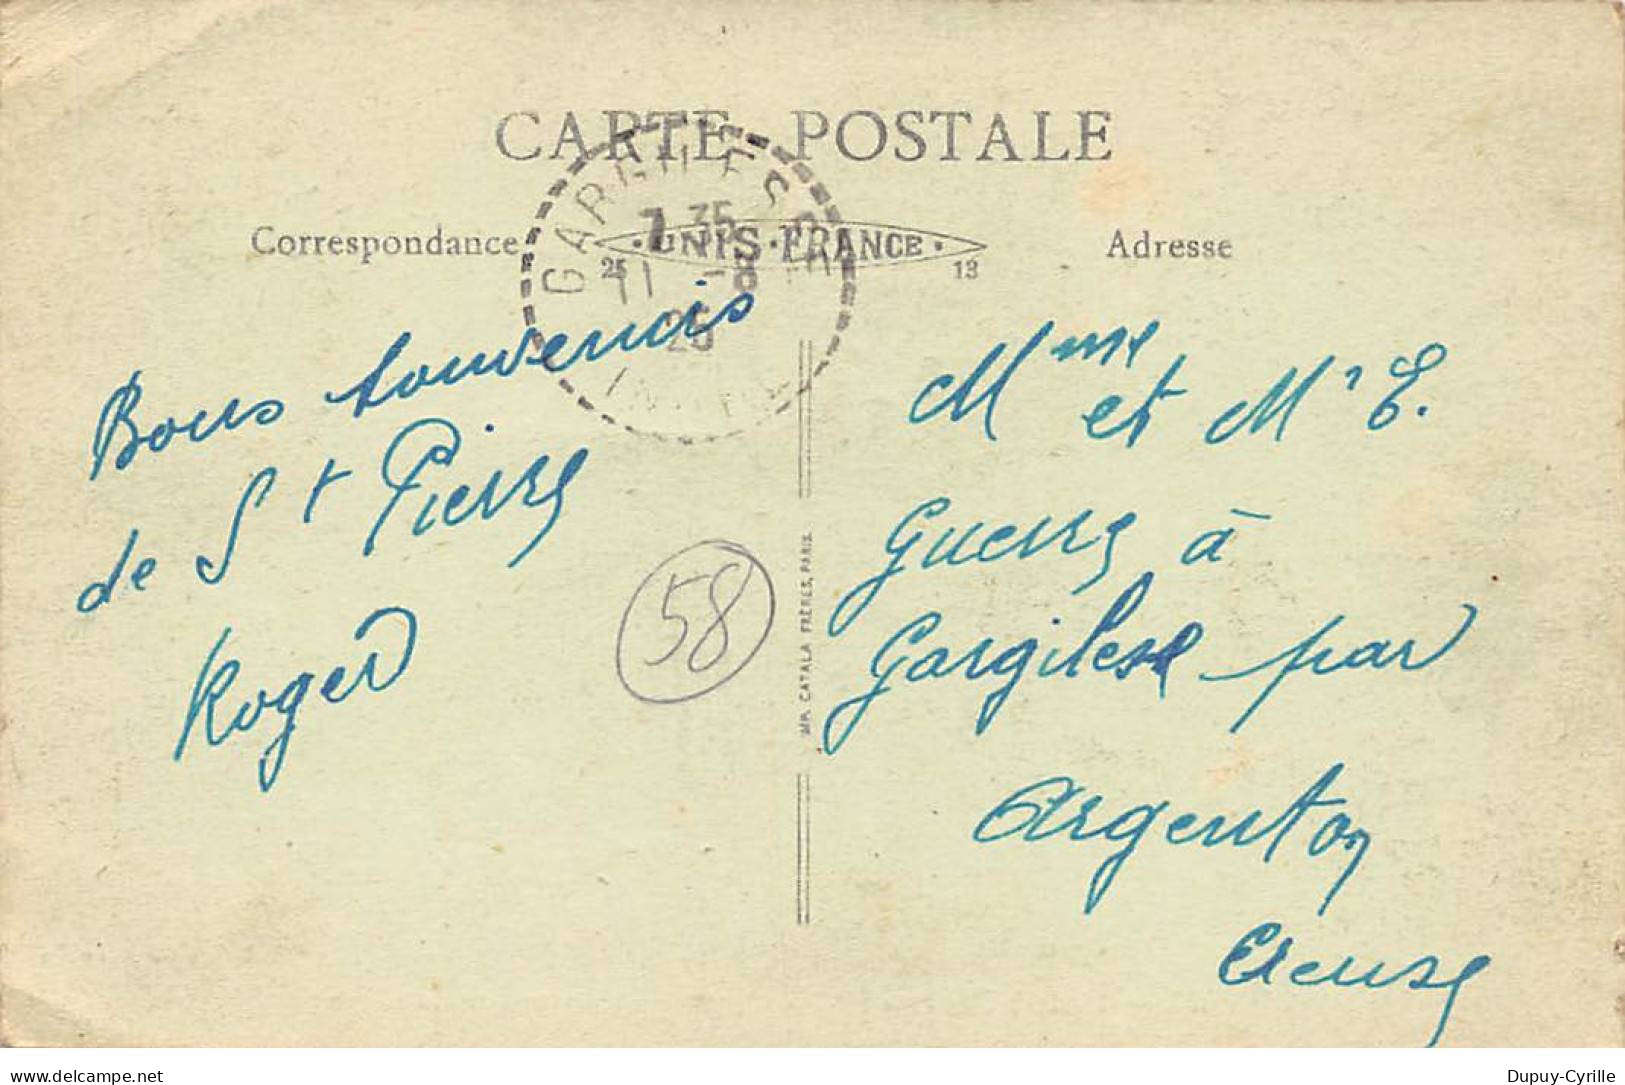 CARTE POSTALE
Correspondance
· UNIS · FRANCE ·
25 13
Adresse
GARGILESSE
7 35
11 -8
25
INDRE
Bons souvenirs
de St Pierre
Roger
58
IMP. CATALA FRÈRES, PARIS.
Mme et Mr E.
Guerre à
Gargilesse par
Argenton
Creuse
www.delcampe.net
Dupuy-Cyrille